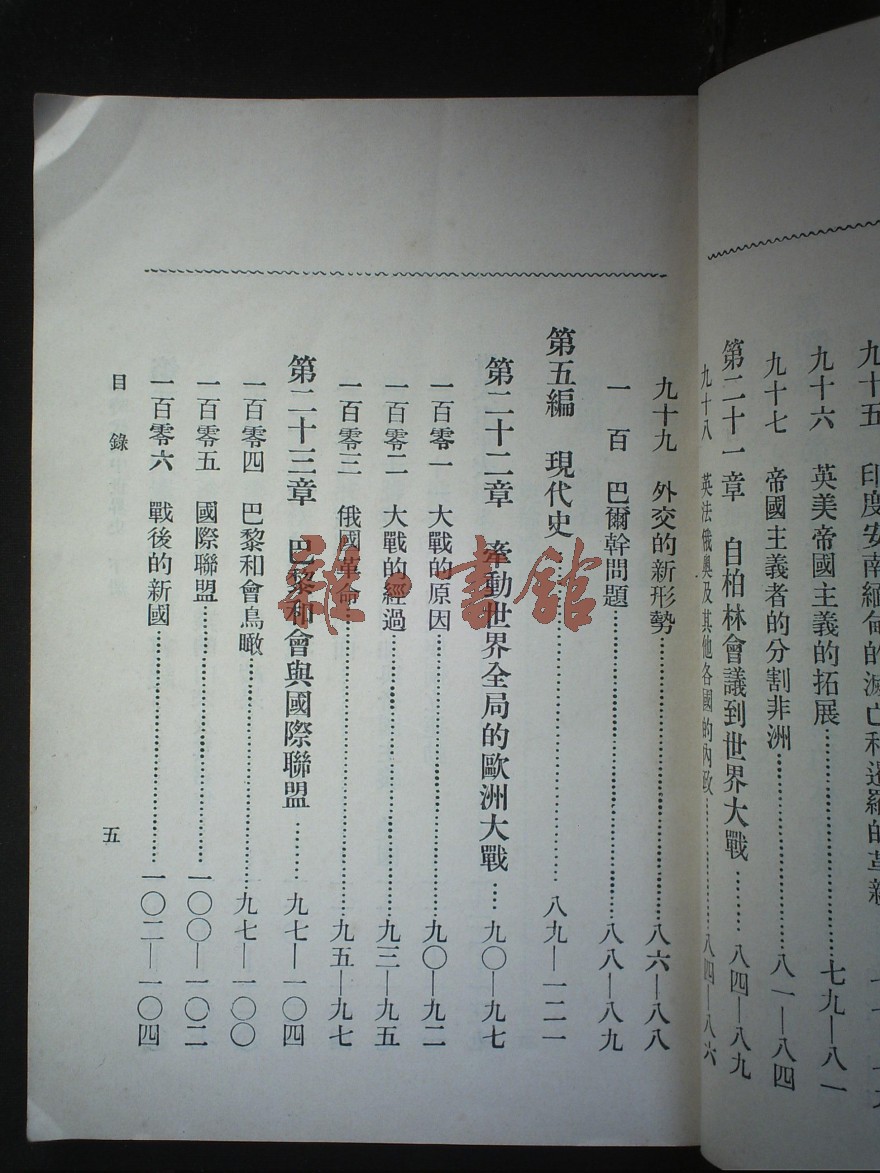 九十五 印度安南緬甸的滅亡和暹羅的革新
九十六 英美帝國主義的拓展……七九—八一
九十七 帝國主義者的分割非洲……八一—八四
第二十一章 自柏林會議到世界大戰……八四—八九
九十八 英法俄奧及其他各國的內政……八四—八六
九十九 外交的新形勢……八六—八八
一百 巴爾幹問題……八八—八九
第五編 現代史……八九—一二一
第二十二章 牽動世界全局的歐洲大戰……九〇—九七
一百零一 大戰的原因……九〇—九二
一百零二 大戰的經過……九三—九五
一百零三 俄國革命……九五—九七
第二十三章 巴黎和會與國際聯盟……九七—一〇四
一百零四 巴黎和會鳥瞰……九七—一〇〇
一百零五 國際聯盟……一〇〇—一〇二
一百零六 戰後的新國……一〇二—一〇四
目錄
五
雜·書館